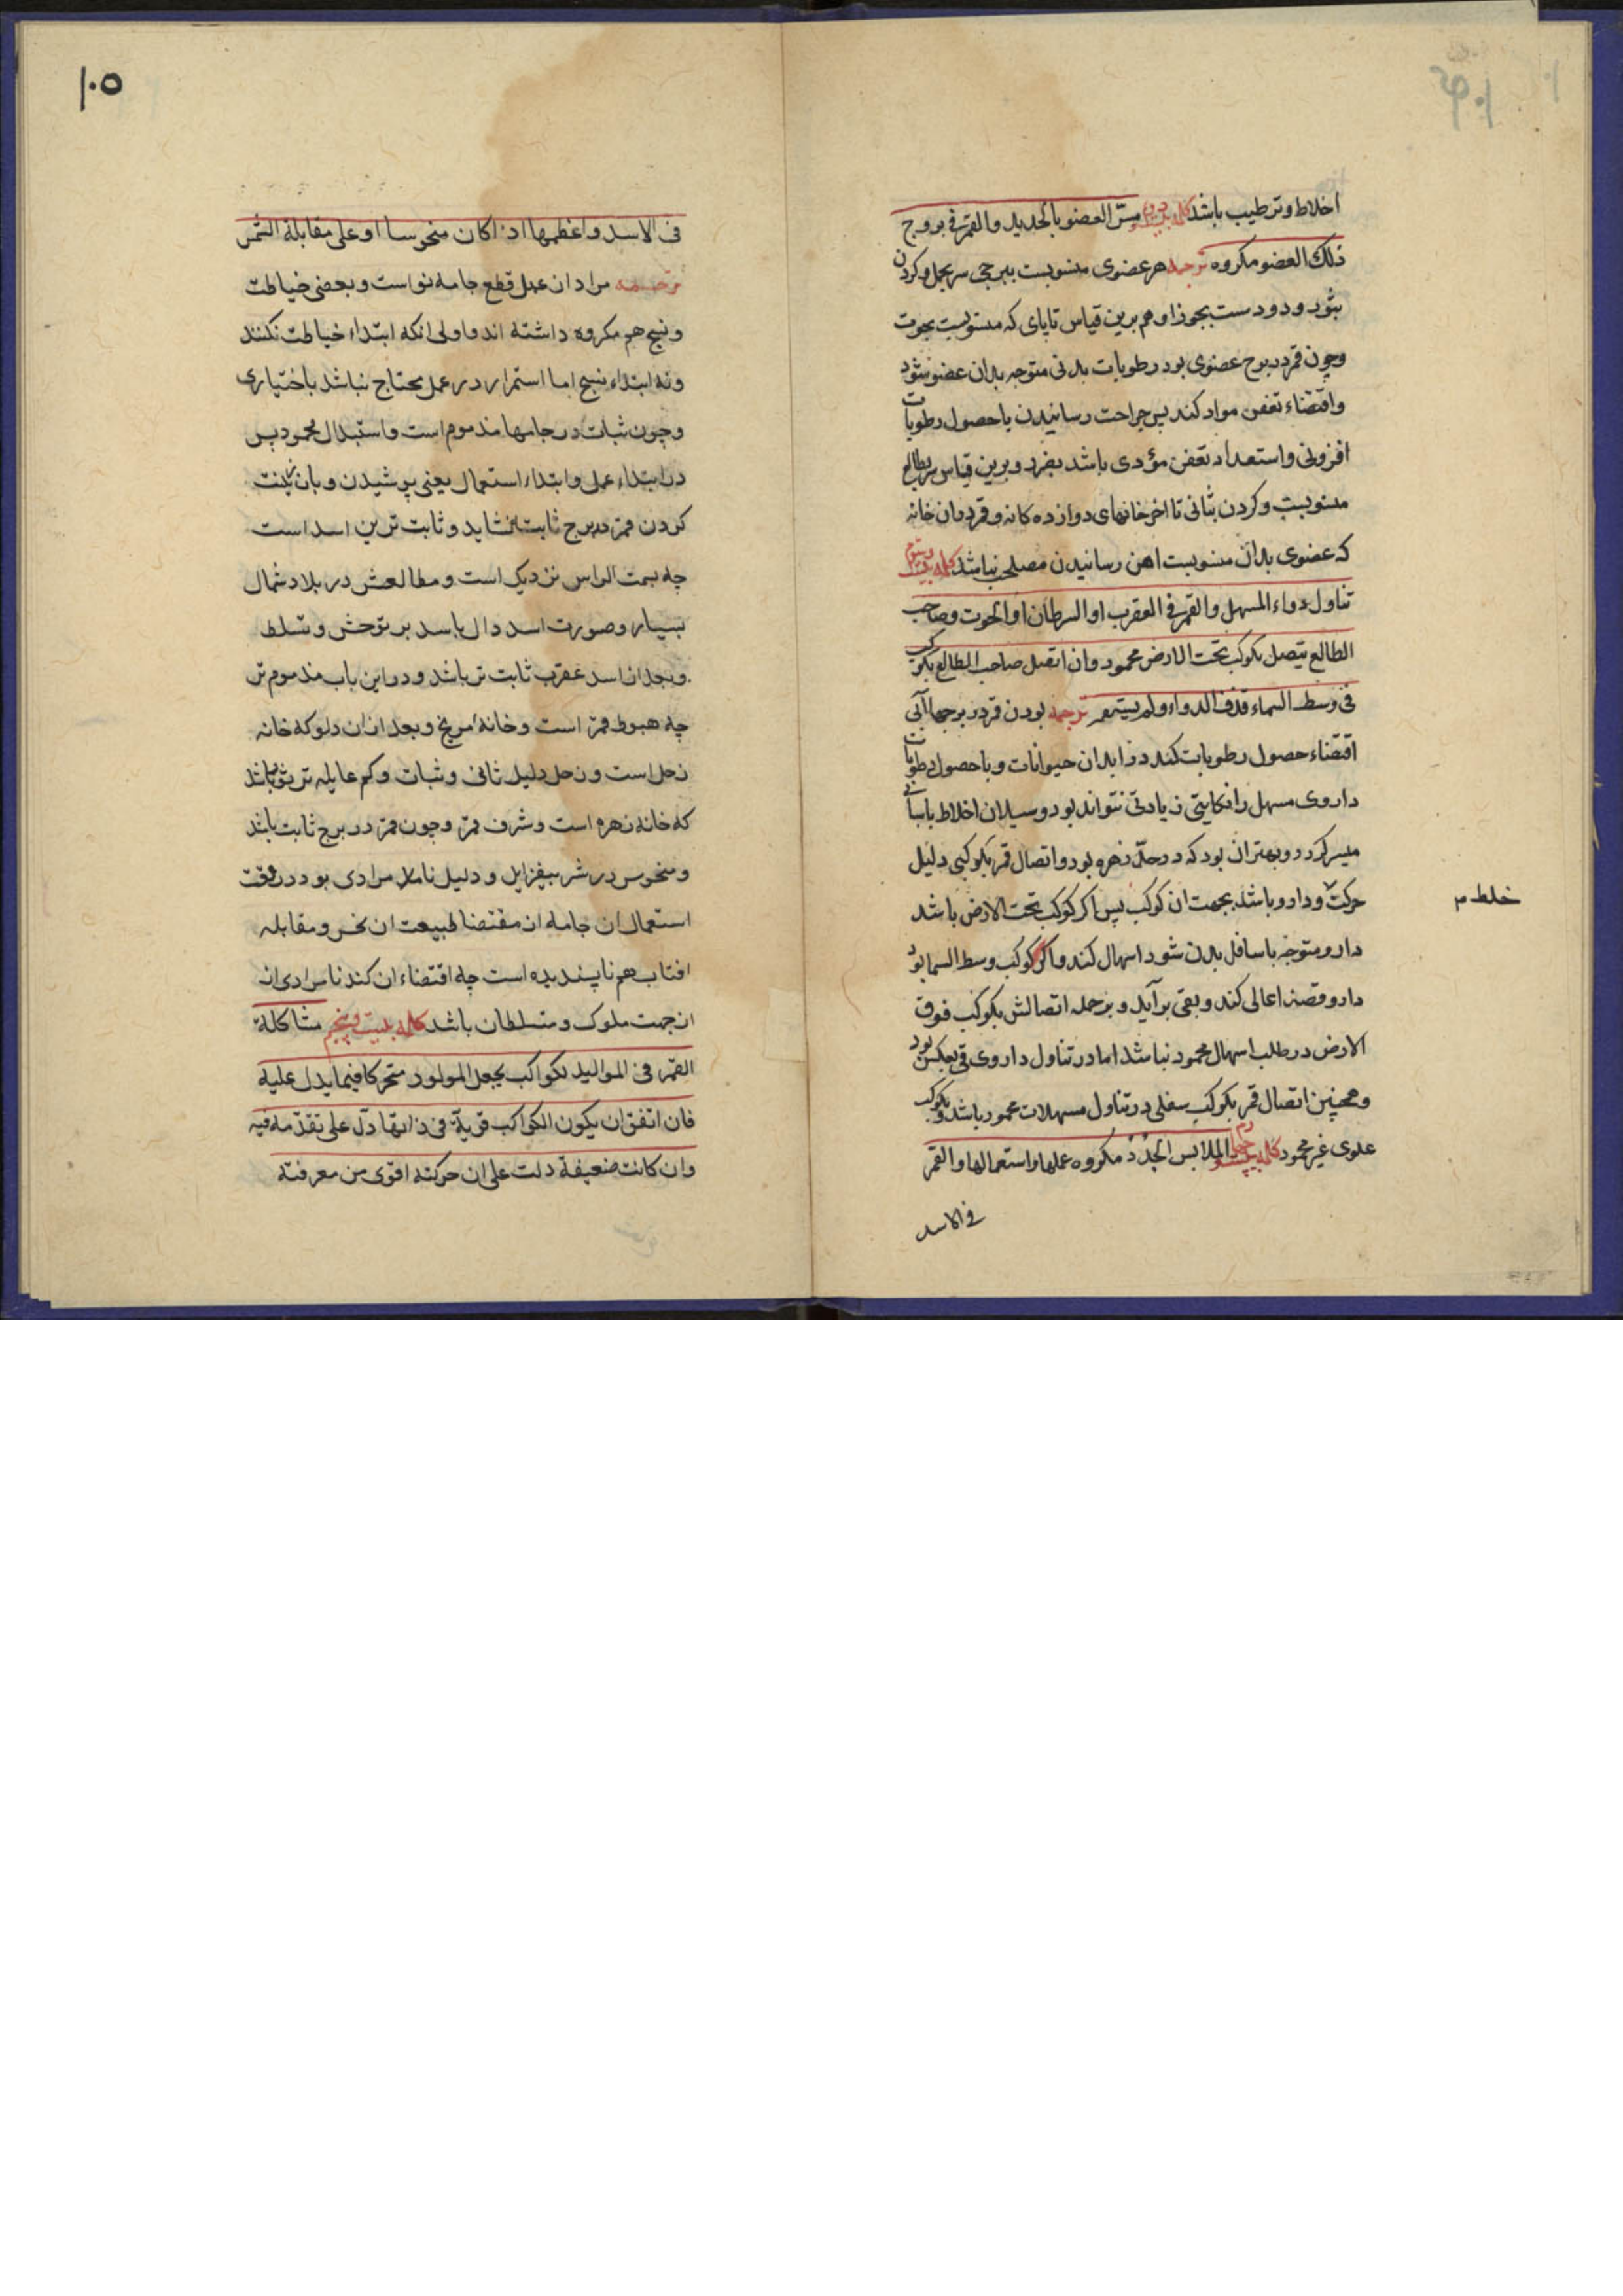 اخلاط و ترطیب باشد کلمه بیست و دوم مس العضو بالحدید والقمر فی بروج
ذلک العضو مکروه ترجمه هر عضوی منسوبست ببرجی سر بحمل و کردن
بثور و دو دست بجوزا و هم برین قیاس تا پای که منسوبست بحوت
وچون قمر در برج عضوی بود رطوبات بدنی متوجه بدان عضو شود
واقتضاء تعفن مواد کند پس جراحت رسانیدن با حصول رطوبات
افزونی و استعداد تعفن مؤدی باشد بضرر و برین قیاس سر بطالع
منسوبست و کردن بثانی تا اخر خانهای دوازده کانه و قمر در ان خانه
که عضوی بدان منسوبست اهن رسانیدن مصلحب نباشد کلمه بیست و سوم
تناول دواء المسهل والقمر فی العقرب او السرطان او الحوت وصاحب
الطالع یتصل بکوکب تحت الارض محمود وان اتصل صاحب الطالع بکوکب
فی وسط السماء قذف الدواء ولم یستمر ترجمه بودن قمر در برجها آبی
اقتضاء حصول رطوبات کند در ابدان حیوانات و با حصول رطوبات
داروی مسهل را نکایتی زیادتی نتواند بود و سیلان اخلاط باسانی
میسر کردد و بهتر ان بود که در حدّ زهره بود و اتصال قمر بکوکبی دلیل
حرکت و دارو باشد بجهت ان کوکب پس اکر کوکب تحت الارض باشد
خلط م
دارو متوجه باسافل بدن شود اسهال کند و اکر کوکب وسط السما بود
دارو قصد اعالی کند و بقی برآید و بر جمله اتصالش بکوکب فوق
الارض در طلب اسهال محمود نباشد اما در تناول داروی قی بعکس بود
وهمچنین اتصال قمر بکوکب سفلی در تناول مسهلات محمود باشد و بکوکب
علوی غیر محمود کلمه بیست و چهارم الملابس الجُدُدُ مکروه عملها واستعمالها والقمر
فی الاسد
۱۰۵
فی الاسد واعظمها اذا کان منحوسا او علی مقابلة الشمس
ترجمه مراد از عمل قطع جامه نو است و بعضی خیاطت
و نسج هم مکروه داشته اند و اولی انکه ابتداء خیاطت نکنند
ونه ابتداء نسج اما استمرار در عمل محتاج نباشد باختیاری
وچون ثبات در جامها مذموم است و استبدال محمود پس
در ابتداء عمل و ابتداء استعمال یعنی پوشیدن و بان زینت
کردن قمر در برج ثابت نشاید و ثابت ترین اسد است
چه بسمت الراس نزدیک است و مطالعش در بلاد شمال
بسیار و صورت اسد دال باسد بر توحش و تسلط
وبعد از اسد عقرب ثابت تر باشد و در این باب مذموم تر
چه هبوط قمر است و خانه مریخ و بعد از ان دلو که خانه
زحل است و زحل دلیل تانی و ثبات و کم عایله تر ثور باشد
که خانه زهره است و شرف قمر و چون قمر در برج ثابت باشد
ومنحوس در شر بیفزاید و دلیل نامرادی بود در وقت
استعمال ان جامه از مقتضا طبیعت ان نحس و مقابله
افتاب هم ناپسندیده است چه اقتضاء ان کند نامرادی از
از جهت ملوک و متسلطان باشد کلمه بیست و پنجم مشاکلة
القمر فی الموالید لکواکب یجعل المولود متحرکا فیما یدل علیه
فان اتفق ان یکون الکواکب قویة فی ذاتها دلّ علی تقدمه فیه
وان کانت ضعیفة دلت علی ان حرکته اقوی من معرفته